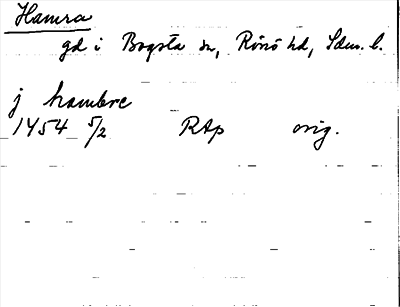 Hamra
gd i Bogsta sn, Rönö hd, Södm. l.
j hambre
1454 5/2 RAp orig.